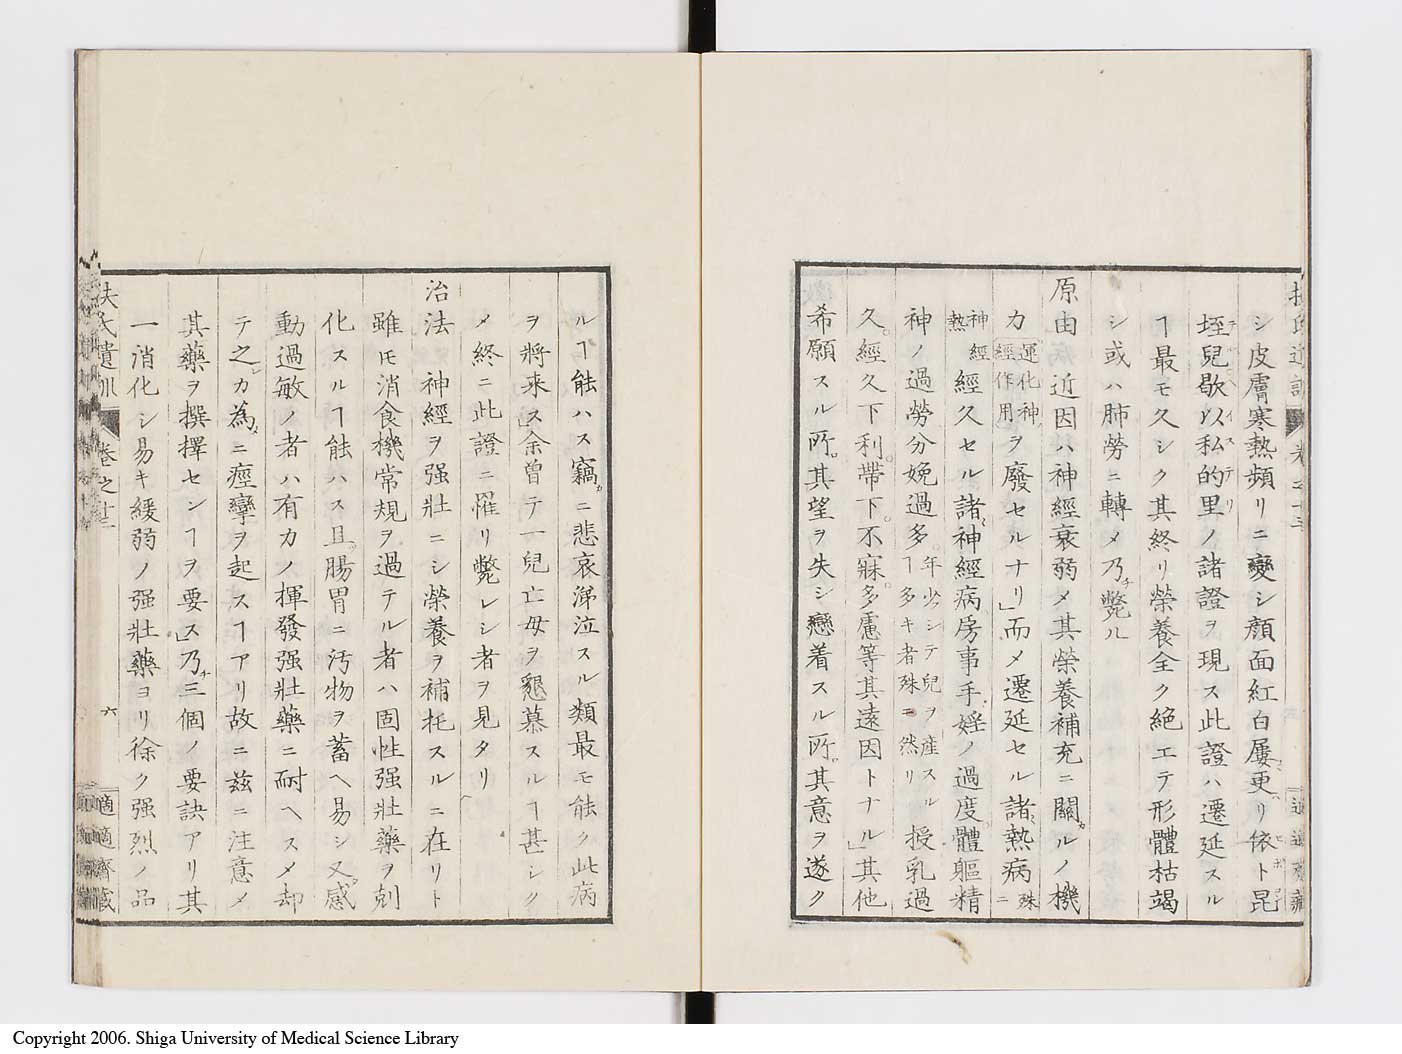 シ皮膚寒熱頻リニ變シ顔面紅白屢更リ依ト昆
垤兒歇以私的里ノ諸證ヲ現ス此證ハ遷延スル
ヿ最モ久シク其終リ榮養全ク絶エテ形體枯竭
シ或ハ肺勞ニ轉メ乃チ斃ル
原由 近因ハ神經衰弱メ其榮養補充ニ關ルノ機
カ運化神經作用ヲ廢セルナリ」而メ遷延セル諸熱病殊ニ
神經熱經久セル諸神經病房事手婬ノ過度體軀精
神ノ過勞分娩過多年少シテ兒ヲ産スルヿ多キ者殊ニ然リ授乳過
久經久下利帶下不寐多慮等其遠因トナル」其他
希願スル所其望ヲ失シ戀着スル所其意ヲ遂ク
ルヿ能ハス竊ニ悲哀涕泣スル類最モ能ク此病
ヲ將来ス」余曾テ一兒亡母ヲ懇慕スルヿ甚シク
メ終ニ此證ニ罹リ斃レシ者ヲ見タリ
治法 神經ヲ强壯ニシ榮養ヲ補托スルニ在リト
雖モ消食機常規ヲ過テル者ハ固性强壯藥ヲ剋
化スルヿ能ハス且腸胃ニ汚物ヲ蓄ヘ易シ又感
動過敏ノ者ハ有力ノ揮發强壯藥ニ耐ヘスメ却
テ之カ為ニ痙攣ヲ起スヿアリ故ニ茲ニ注意メ
其藥ヲ撰擇センヿヲ要ス」乃チ三個ノ要訣アリ其
一消化シ易キ緩弱ノ强壯藥ヨリ徐ク强烈ノ品
扶氏遺訓 卷之十三 六 適適齋藏
Copyright 2006. Shiga University of Medical Science Library